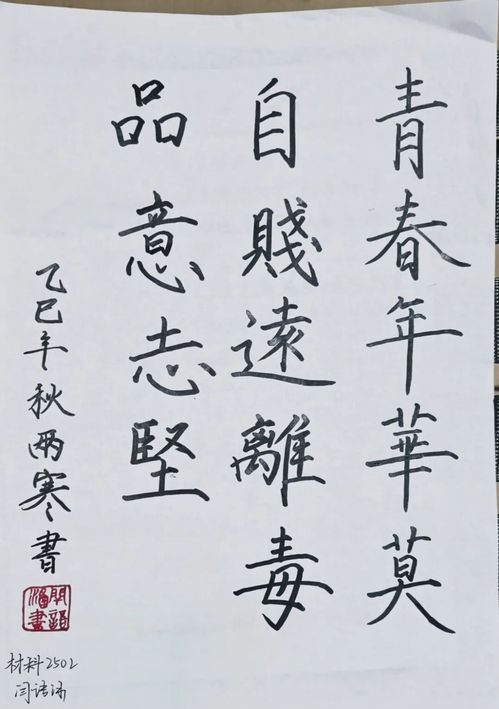 青春年華莫
自賤遠離毒
品意志堅
乙巳年秋两寒書
材料2502
闫语